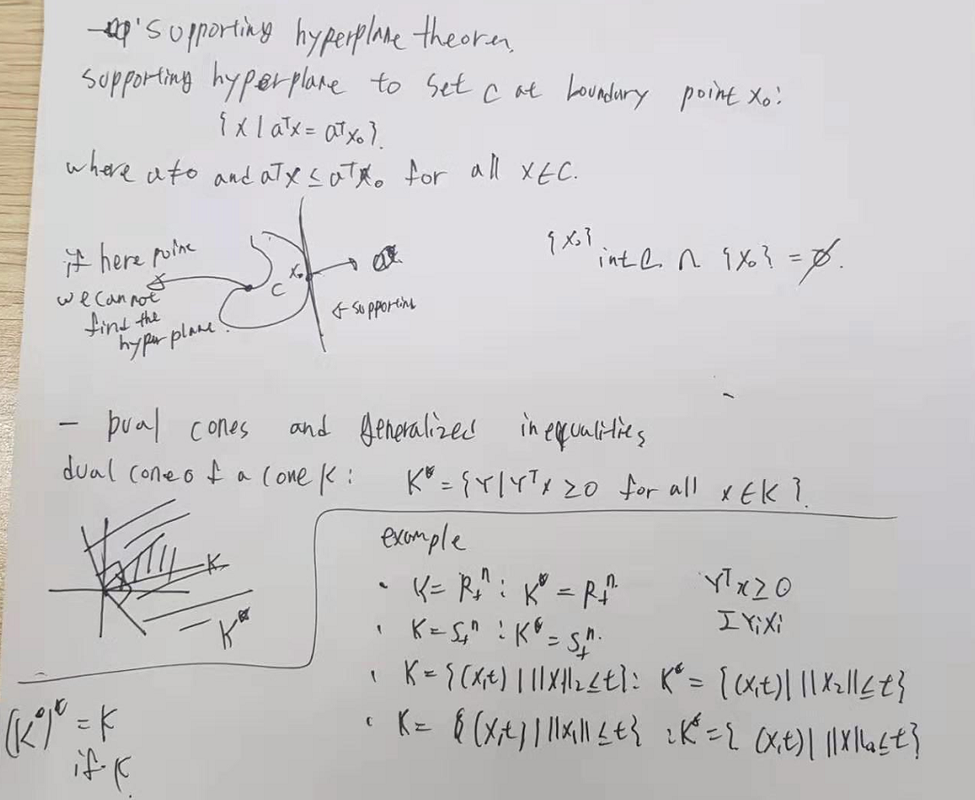 supporting hyperplane theorem.
supporting hyperplane to set C at boundary point x₀:
{x | aᵀx = aᵀx₀}.
where a≠0 and aᵀx ≤ aᵀx₀ for all x∈C.
if here point
we cannot
find the
hyperplane.
x₀
C
a
supporting
{x₀}
int C ∩ {x₀} = ∅.
- Dual cones and generalized inequalities
dual cones of a cone K: K* = {Y | Yᵀx ≥ 0 for all x∈K}.
K
K*
example
· K = R₊ⁿ : K* = R₊ⁿ. Yᵀx ≥ 0
· K = S₊ⁿ : K* = S₊ⁿ. ΣYᵢXᵢ
· K = {(x,t) | ||x||₂ ≤ t} : K* = {(x,t) | ||x₂|| ≤ t}
· K = {(x,t) | ||x₁|| ≤ t} : K* = { (x,t) | ||x|| ≤ t}
(K*)* = K
if K